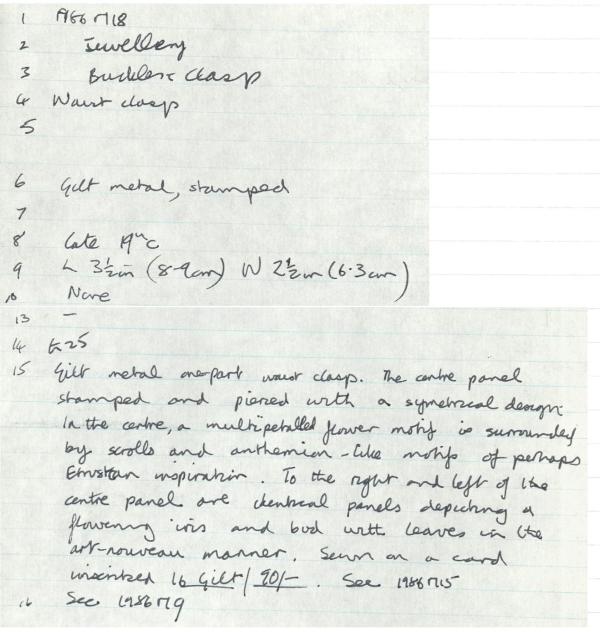 1 1986 M18
2 Jewellery
3 Buckle & clasp
4 Waist clasp
5
6 Gilt metal, stamped
7
8 Late 19th C
9 L 3½in (8.9cm) W 2½in (6.3cm)
10 None
13 -
14 £25
15 Gilt metal one-part waist clasp. The centre panel
stamped and pierced with a symetrical design.
In the centre, a multipetalled flower motif is surrounded
by scrolls and anthemion-like motifs of perhaps
Etruscan inspiration. To the right and left of the
centre panel are identical panels depicting a
flowering iris and bud with leaves in the
art-nouveau manner. Sewn on a card
inscribed 16 Gilt/90/-. See 1986 M15
16 See 1986 M9